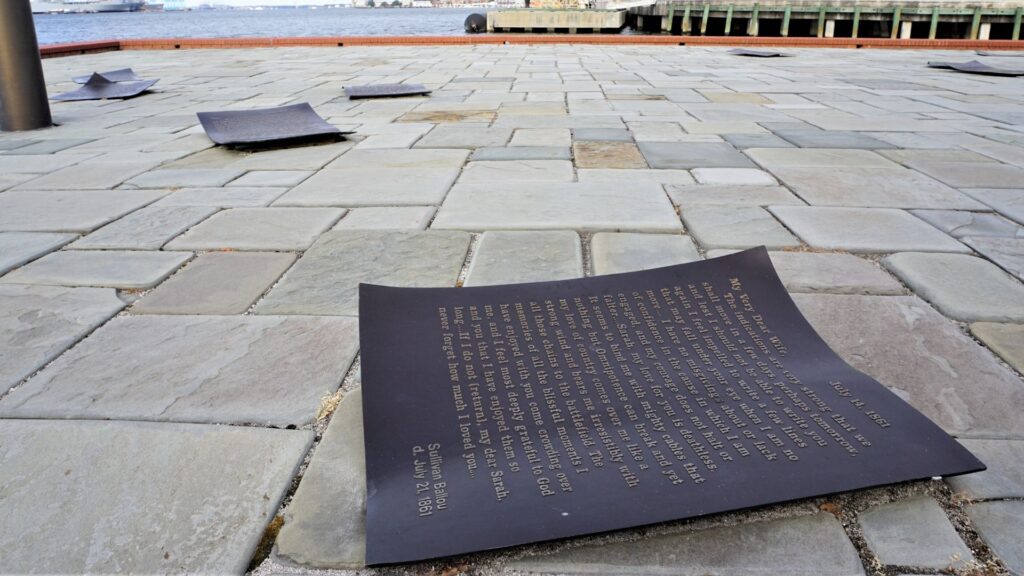 July 14, 1861
My Very Dear Wife,
The indications are very strong that we
shall move in a few days, perhaps tomorrow,
and lest I should not be able to write you
again I feel impelled to write a few lines
that may fall under your eye when I am no
more. I have no misgivings about or lack
of confidence in the cause in which I am
engaged, and my courage does not halt or
falter. Sarah, my love for you is deathless.
It seems to bind me with mighty cables that
nothing but Omnipotence can break and yet
my love of country comes over me like a
strong wind and bears me irresistibly with
all those chains to the battlefield. The
memories of all the blissful moments I
have enjoyed with you come crowding over
me, and I feel most deeply grateful to God
and you that I have enjoyed them so
long...If I do not (return), my dear Sarah,
never forget how much I loved you...
Sullivan Ballou
d. July 21, 1861